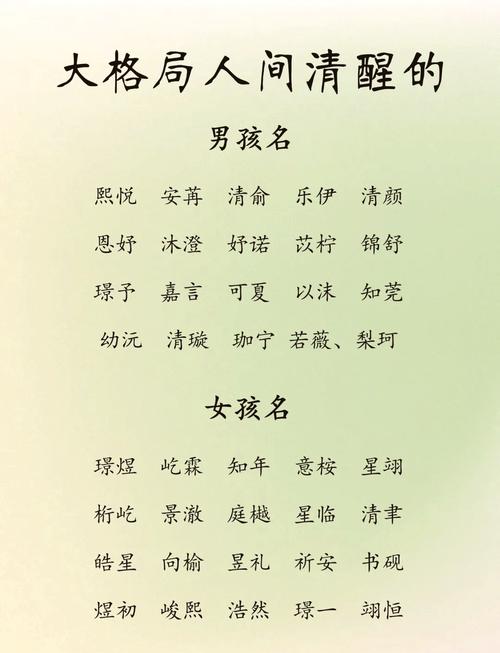 大格局人间清醒的
男孩名
熙悦 安苒 清俞 乐伊 清颜
恩妤 沐澄 妤诺 苡柠 锦舒
璟予 嘉言 可夏 以沫 知莞
幼沅 清璇 珈宁 若薇、梨珂
女孩名
璟煜 屹霖 知年 意桉 星翊
桁屹 景澈 庭樾 星临 清聿
皓星 向榆 昱礼 祈安 书砚
煜初 峻熙 浩然 璟一 翊恒